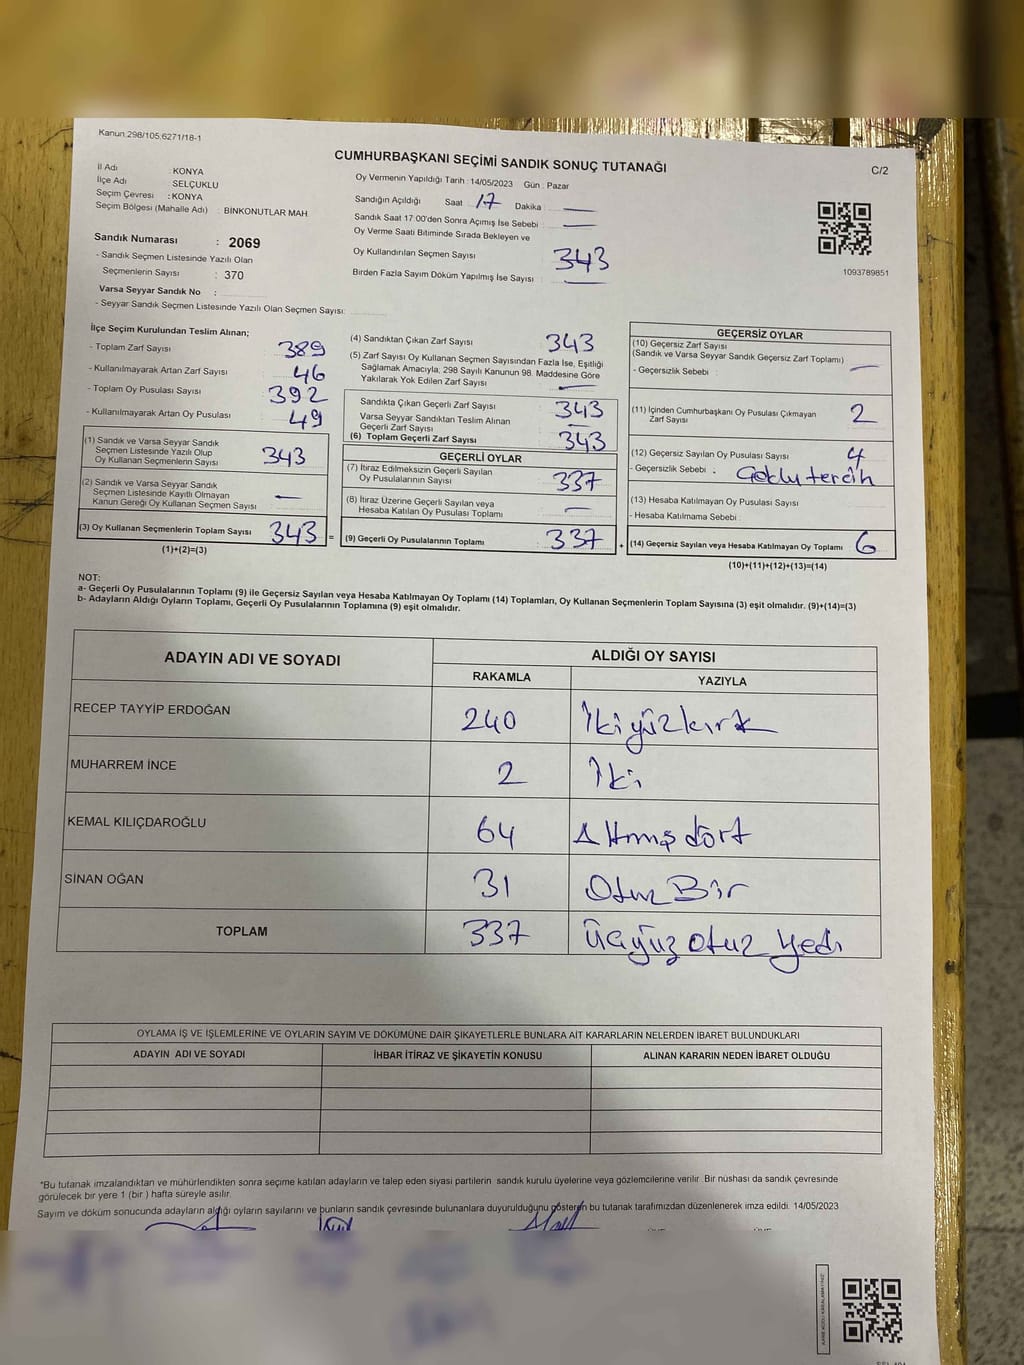 Kanun.298/105.6271/18-1
CUMHURBAŞKANI SEÇİMİ SANDIK SONUÇ TUTANAĞI
C/2
İl Adı : KONYA
İlçe Adı : SELÇUKLU
Seçim Çevresi : KONYA
Seçim Bölgesi (Mahalle Adı) : BİNKONUTLAR MAH
Sandık Numarası : 2069
- Sandık Seçmen Listesinde Yazılı Olan
Seçmenlerin Sayısı : 370
Varsa Seyyar Sandık No :
- Seyyar Sandık Seçmen Listesinde Yazılı Olan Seçmen Sayısı:
Oy Vermenin Yapıldığı Tarih : 14/05/2023 Gün : Pazar
Sandığın Açıldığı Saat 17 Dakika : —
Sandık Saat 17:00'den Sonra Açımış İse Sebebi : —
Oy Verme Saati Bitiminde Sırada Bekleyen ve
Oy Kullandırılan Seçmen Sayısı 343
Birden Fazla Sayım Döküm Yapılmış İse Sayısı : —
1093789851
İlçe Seçim Kurulundan Teslim Alınan;
- Toplam Zarf Sayısı 389
- Kullanılmayarak Artan Zarf Sayısı 46
- Toplam Oy Pusulası Sayısı 392
- Kullanılmayarak Artan Oy Pusulası 49
(1) Sandık ve Varsa Seyyar Sandık
Seçmen Listesinde Yazılı Olup
Oy Kullanan Seçmenlerin Sayısı 343
(2) Sandık ve Varsa Seyyar Sandık
Seçmen Listesinde Kayıtlı Olmayan
Kanun Gereği Oy Kullanan Seçmen Sayısı —
(3) Oy Kullanan Seçmenlerin Toplam Sayısı 343 =
(1)+(2)=(3)
(4) Sandıktan Çıkan Zarf Sayısı 343
(5) Zarf Sayısı Oy Kullanan Seçmen Sayısından Fazla İse, Eşitliği
Sağlamak Amacıyla; 298 Sayılı Kanunun 98. Maddesine Göre
Yakılarak Yok Edilen Zarf Sayısı —
Sandıkta Çıkan Geçerli Zarf Sayısı 343
Varsa Seyyar Sandıktan Teslim Alınan
Geçerli Zarf Sayısı —
(6) Toplam Geçerli Zarf Sayısı 343
GEÇERLİ OYLAR
(7) İtiraz Edilmeksizin Geçerli Sayılan
Oy Pusulalarının Sayısı 337
(8) İtiraz Üzerine Geçerli Sayılan veya
Hesaba Katılan Oy Pusulası Toplamı —
(9) Geçerli Oy Pusulalarının Toplamı 337 +
GEÇERSİZ OYLAR
(10) Geçersiz Zarf Sayısı
(Sandık ve Varsa Seyyar Sandık Geçersiz Zarf Toplamı) —
- Geçersizlik Sebebi :
(11) İçinden Cumhurbaşkanı Oy Pusulası Çıkmayan
Zarf Sayısı 2
(12) Geçersiz Sayılan Oy Pusulası Sayısı 4
- Geçersizlik Sebebi : Çoklu tercih
(13) Hesaba Katılmayan Oy Pusulası Sayısı
- Hesaba Katılmama Sebebi :
(14) Geçersiz Sayılan veya Hesaba Katılmayan Oy Toplamı 6
(10)+(11)+(12)+(13)=(14)
NOT:
a- Geçerli Oy Pusulalarının Toplamı (9) ile Geçersiz Sayılan veya Hesaba Katılmayan Oy Toplamı (14) Toplamları, Oy Kullanan Seçmenlerin Toplam Sayısına (3) eşit olmalıdır. (9)+(14)=(3)
b- Adayların Aldığı Oyların Toplamı, Geçerli Oy Pusulalarının Toplamına (9) eşit olmalıdır.
ADAYIN ADI VE SOYADI
ALDIĞI OY SAYISI
RAKAMLA YAZIYLA
RECEP TAYYİP ERDOĞAN 240 İki yüz kırk
MUHARREM İNCE 2 İki
KEMAL KILIÇDAROĞLU 64 Altmış dört
SİNAN OĞAN 31 Otuz Bir
TOPLAM 337 Üçyüz otuz yedi
OYLAMA İŞ VE İŞLEMLERİNE VE OYLARIN SAYIM VE DÖKÜMÜNE DAİR ŞİKAYETLERLE BUNLARA AİT KARARLARIN NELERDEN İBARET BULUNDUKLARI
ADAYIN ADI VE SOYADI İHBAR İTİRAZ VE ŞİKAYETİN KONUSU ALINAN KARARIN NEDEN İBARET OLDUĞU
*Bu tutanak imzalandıktan ve mühürlendikten sonra seçime katılan adayların ve talep eden siyasi partilerin sandık kurulu üyelerine veya gözlemcilerine verilir. Bir nüshası da sandık çevresinde
görülecek bir yere 1 (bir ) hafta süreyle asılır.
Sayım ve döküm sonucunda adayların aldığı oyların sayılarını ve bunların sandık çevresinde bulunanlara duyurulduğunu gösteren bu tutanak tarafımızdan düzenlenerek imza edildi. 14/05/2023